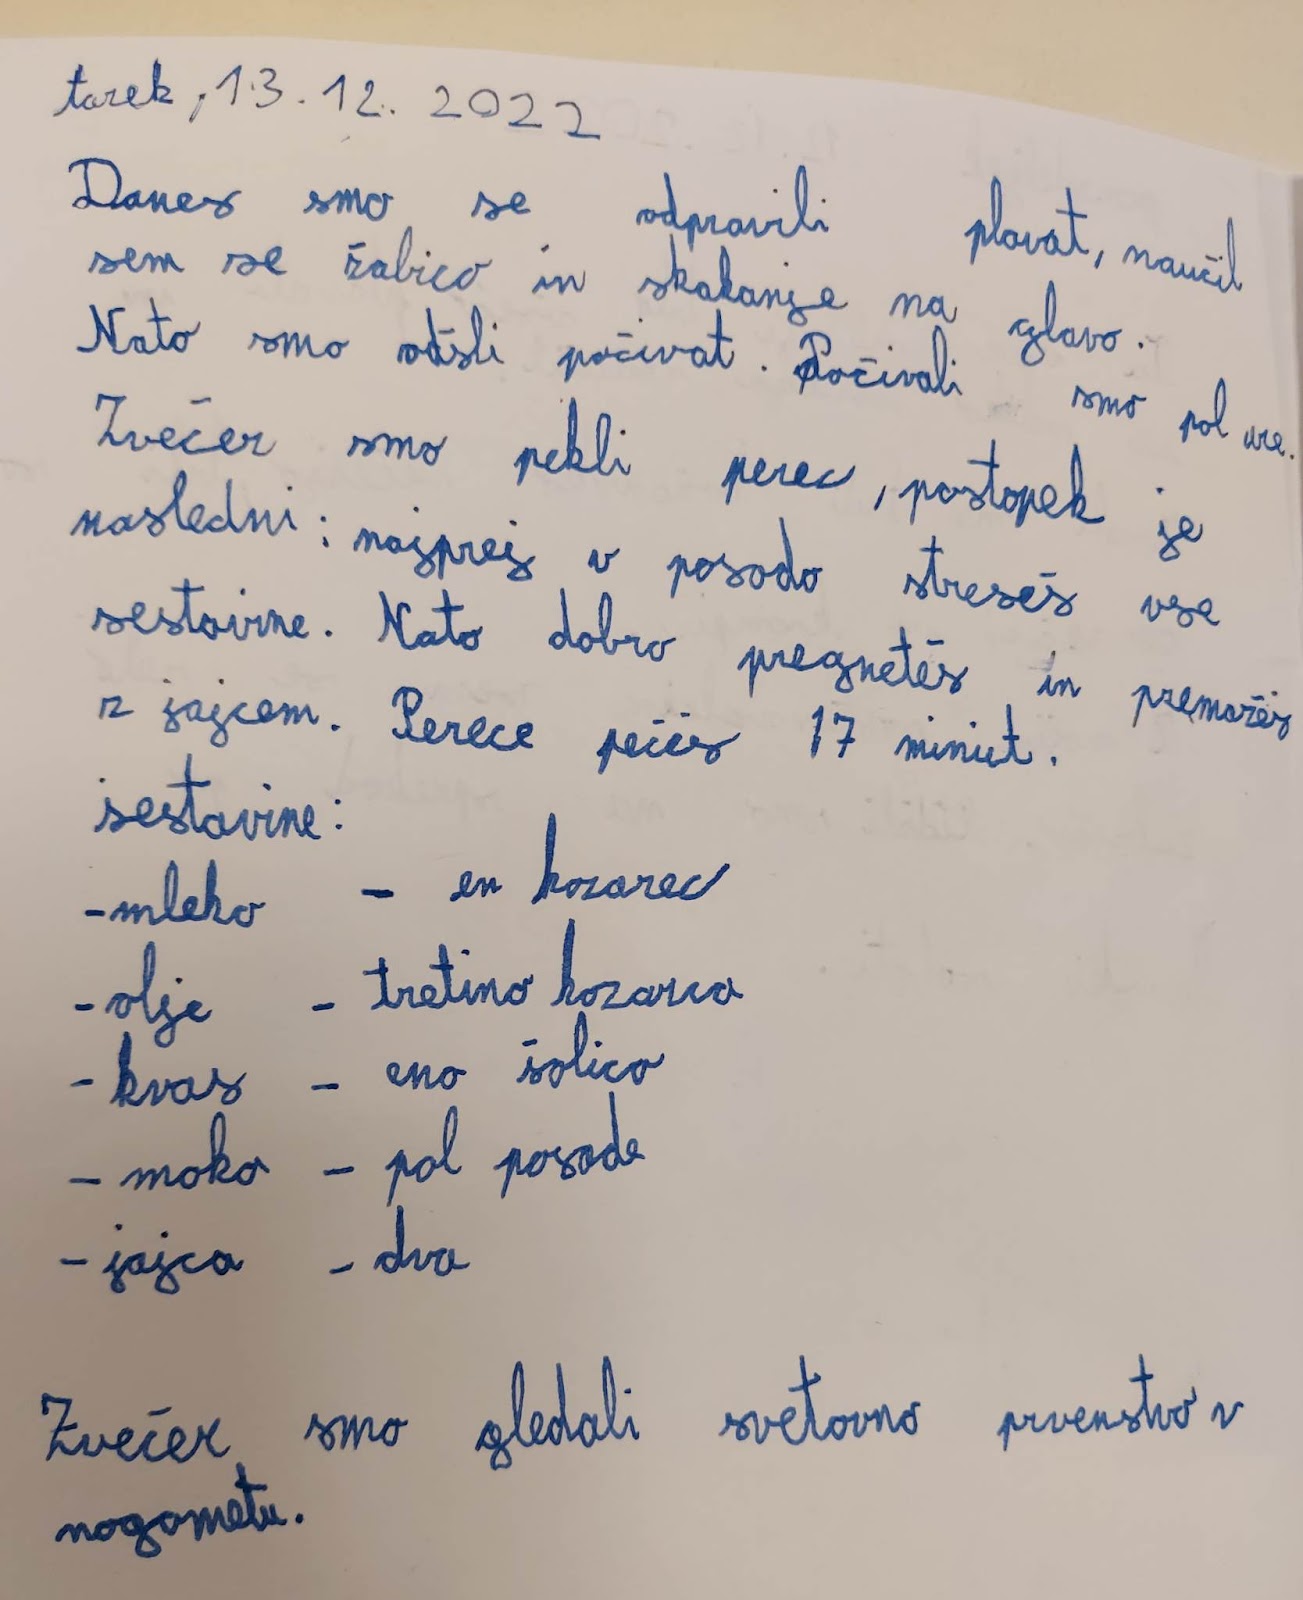 torek, 13.12.2022
Danes smo se odpravili plavat, naučil
sem se žabico in skakanje na glavo.
Nato smo odšli počivat. Počivali smo pol ure.
Zvečer smo pekli perec, postopek je
naslednji: najprej v posodo streseš vse
sestavine. Nato dobro pregneteš in premažeš
z jajcem. Perece pečeš 17 minut.
sestavine:
-mleko - en kozarec
-olje - tretino kozarca
-kvas - eno šalico
-moko - pol posode
-jajca - dva
Zvečer smo gledali svetovno prvenstvo v
nogometu.